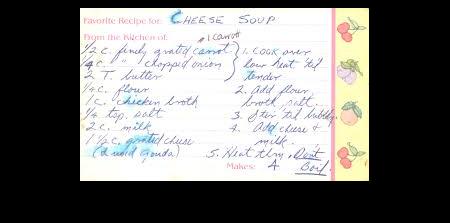 Favorite Recipe for: CHEESE SOUP
From the Kitchen of: #1 Carrott
1/2 c. finely grated carrot } 1. Cook over
1/4 c. " chopped onion low heat 'til
2 T. butter tender
1/4 c. flour 2. Add flour,
1 c. chicken broth broth, salt.
1/4 tsp. salt 3. Stir 'til bubbly
2 c. milk 4. Add cheese +
1 1/2 c. grated cheese milk.
(I used Gouda) 5. Heat thru. Don't
Makes: 4 Boil